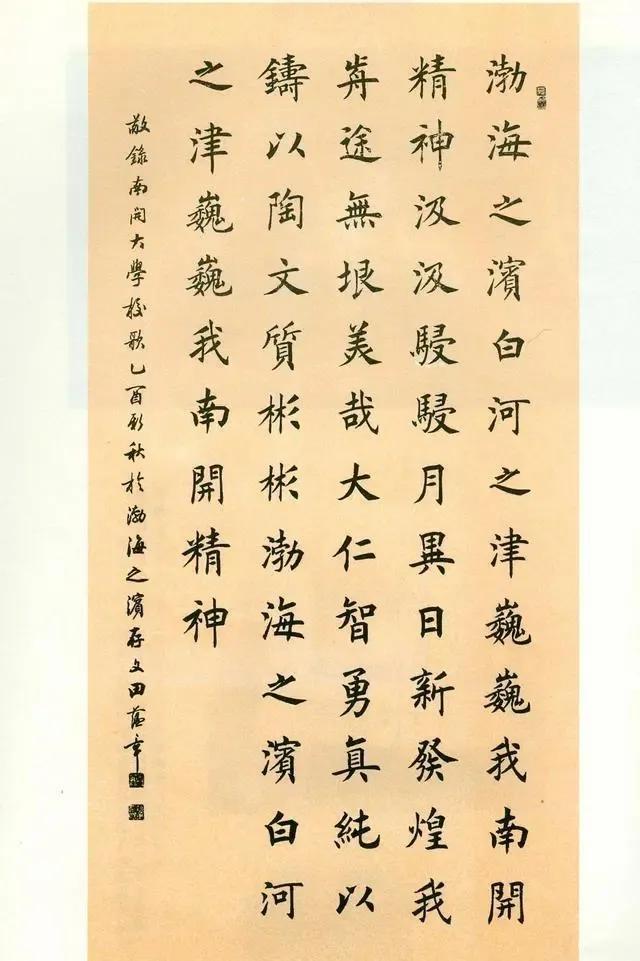 渤海之濱白河之津巍巍我南開
精神汲汲駸駸月異日新發煌我
歬途無垠美哉大仁智勇真純以
鑄以陶文質彬彬渤海之濱白河
之津巍巍我南開精神
敬錄南開大學校歌乙酉新秋於渤海之濱存文田蘊章